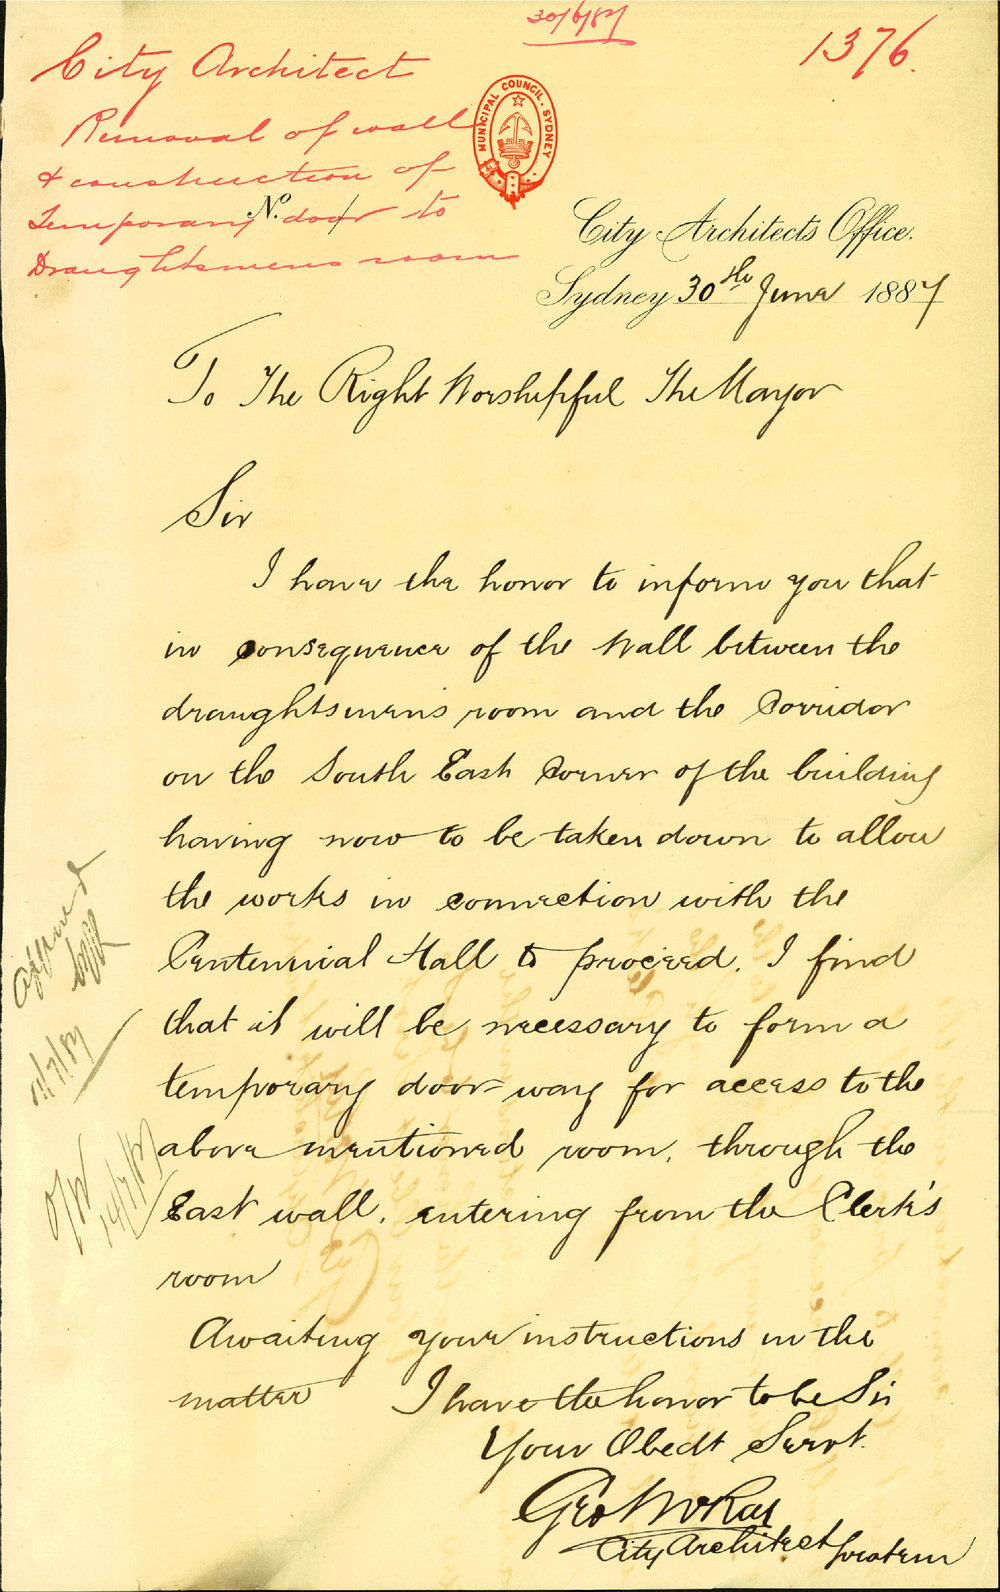 30/6/87
1376.
City Architect
Removal of wall
& construction of
Temporary door to
Draughtsmens room
No.
MUNICIPAL COUNCIL. SYDNEY
City Architects Office.
Sydney 30th June 1887
To The Right Worshipful The Mayor
Sir
I have the honor to inform you that
in consequence of the Wall between the
draughtsmen's room and the Corridor
on the South East Corner of the building
having now to be taken down to allow
the works in connection with the
Centennial Hall to proceed. I find
that it will be necessary to form a
temporary door-way for access to the
above mentioned room, through the
East wall, entering from the Clerk's
room
Awaiting your instructions in the
matter I have the honor to be Sir
Your Obedt Servt.
Geo McRae
City Architect protem
Approved
11/7/87
14/7/87